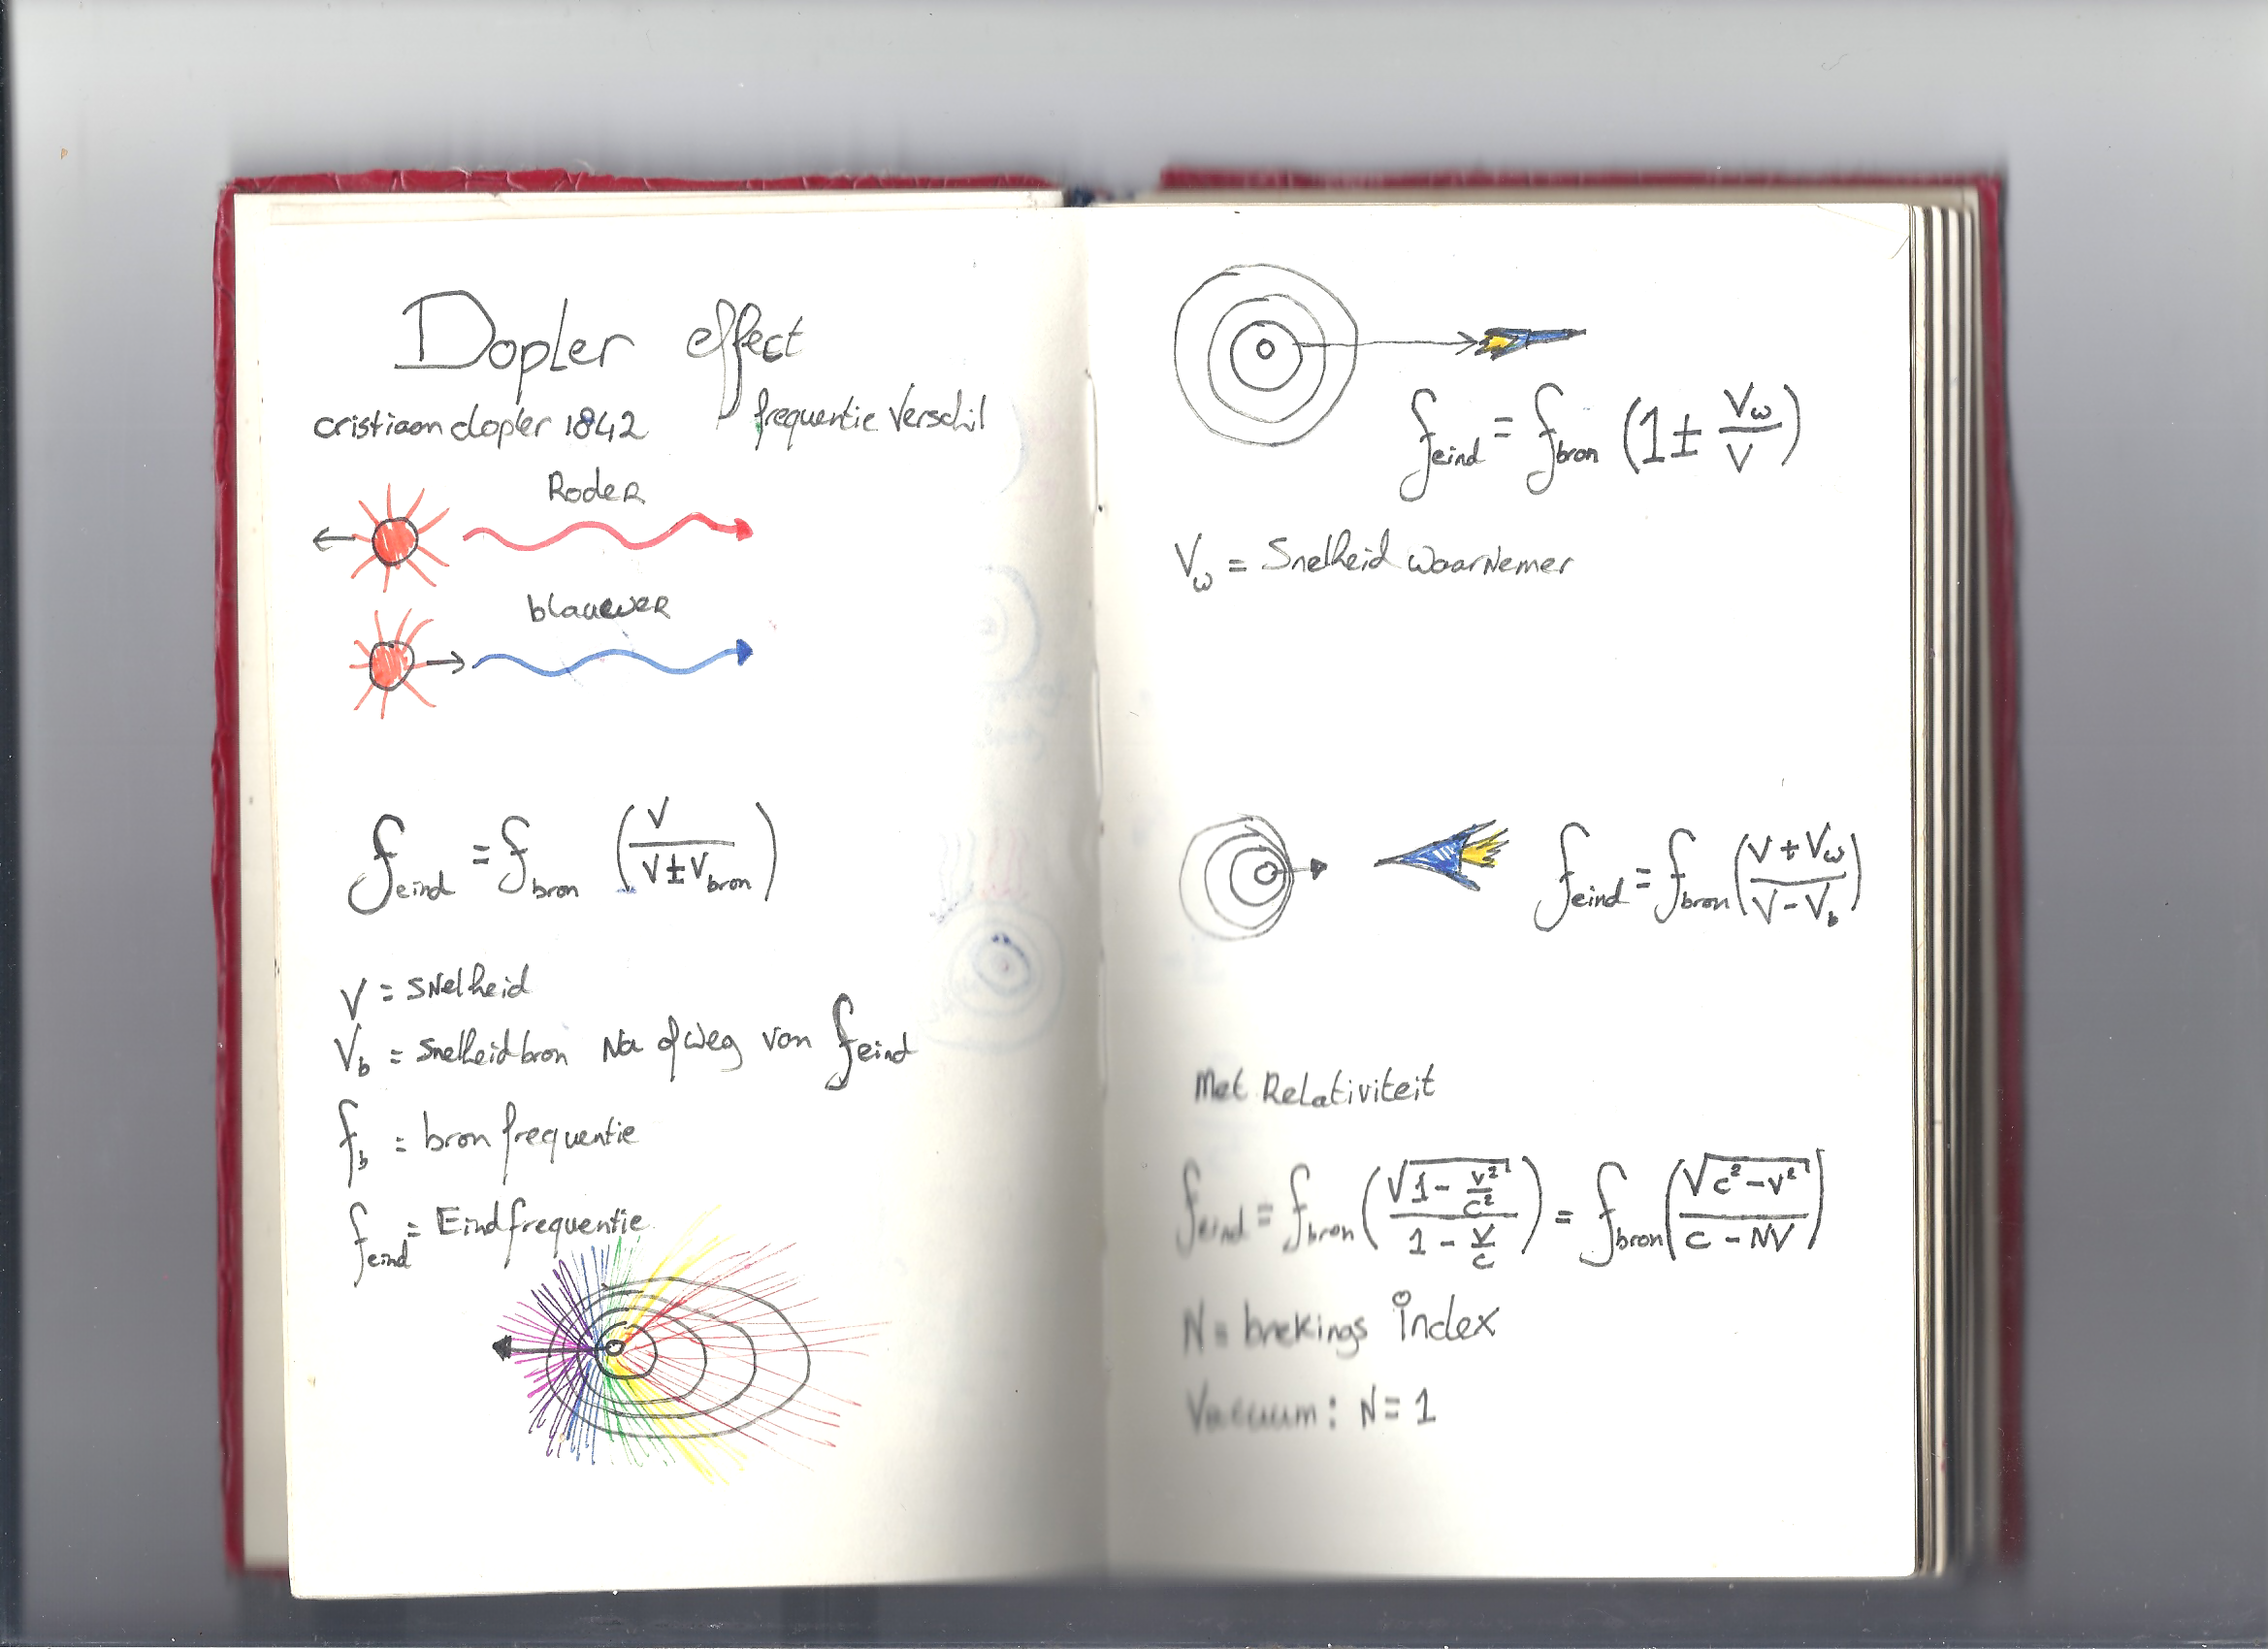 Dopler effect
cristiaan dopler 1842
frequentie verschil
Roder
blauwer
f_eind = f_bron (V / (V ± V_bron))
V = snelheid
V_b = snelheid bron Na of weg van f_eind
f_b = bron frequentie
f_eind = Eindfrequentie
f_eind = f_bron (1 ± V_w / V)
V_w = Snelheid waarnemer
f_eind = f_bron ((V + V_w) / (V - V_b))
Met Relativiteit
f_eind = f_bron (√(1 - v²/c²) / (1 - v/c)) = f_bron (√(c² - v²) / (c - NV))
N = brekings index
Vacuum: N = 1